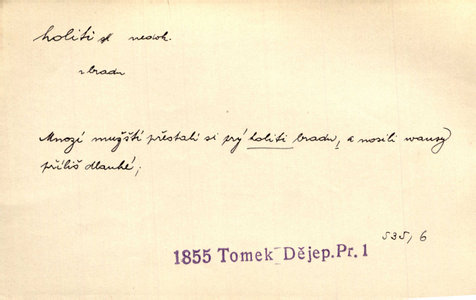 holiti nedok.
bradu
Mnozí mužští přestali si prý holiti bradu, a nosili wousy
příliš dlouhé;
535, 6
1855 Tomek Dějep. Pr. 1